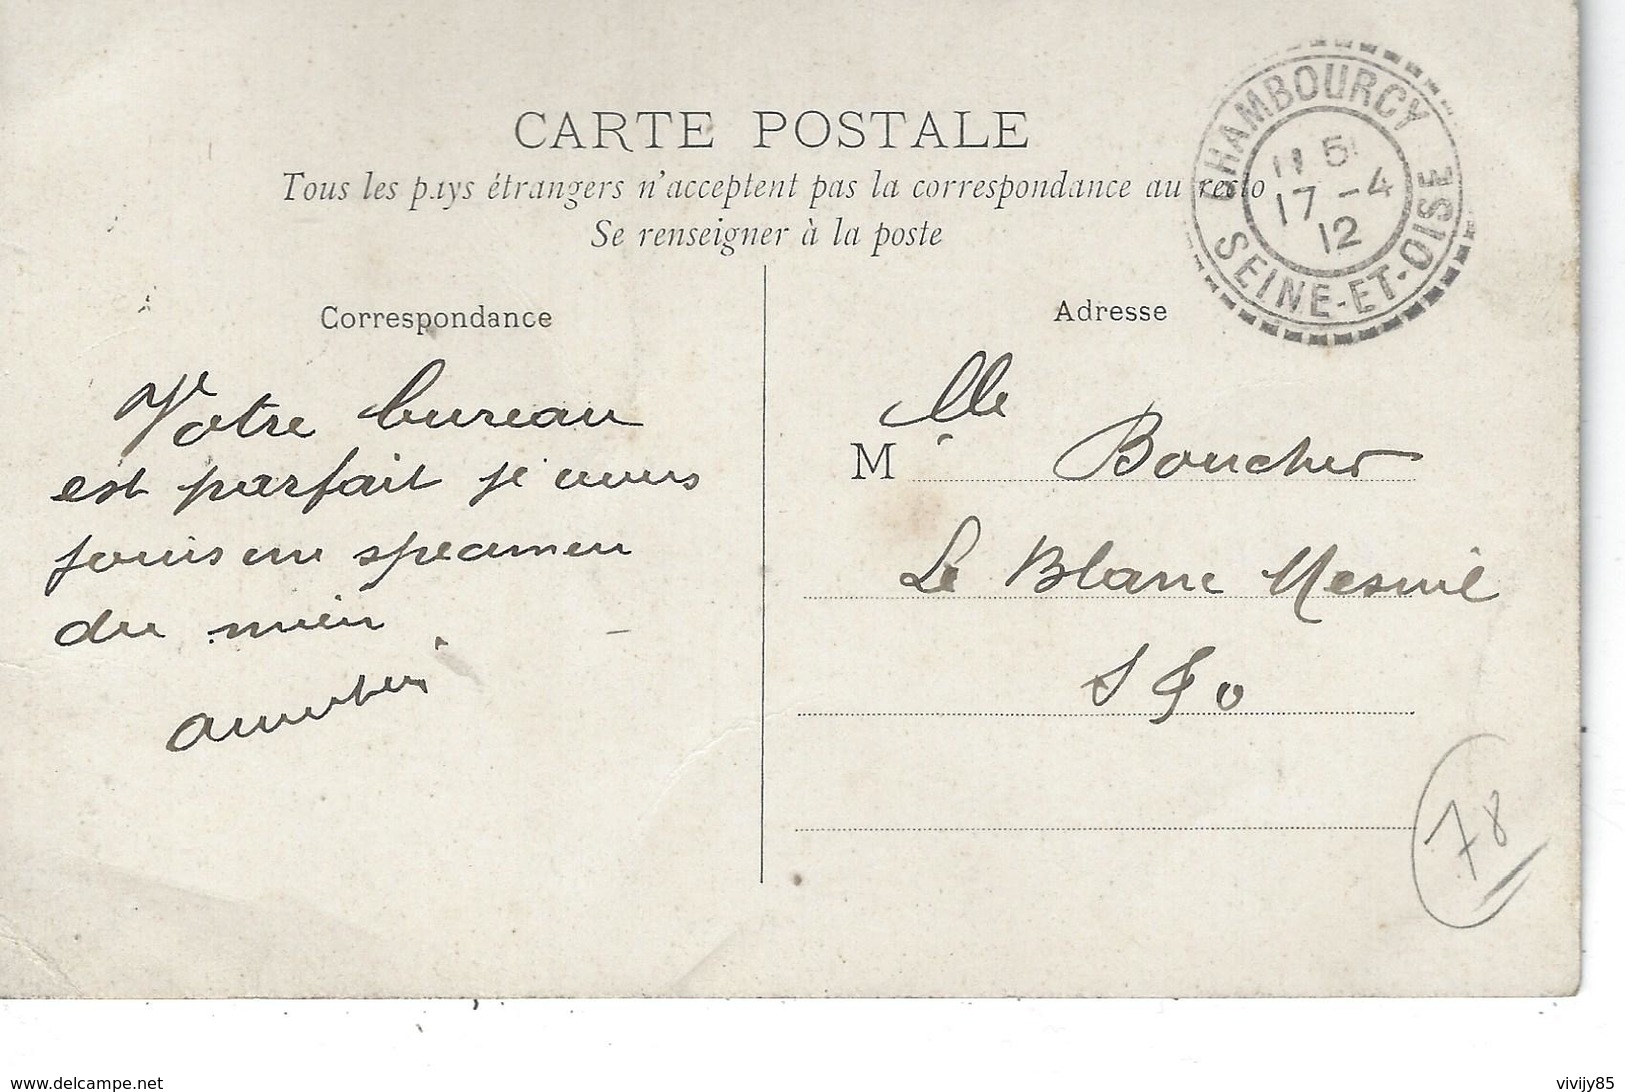 CARTE POSTALE
Tous les pays étrangers n'acceptent pas la correspondance au recto
Se renseigner à la poste
CHAMBOURCY
11 5
17 -4
12
SEINE-ET-OISE
Correspondance
Votre bureau
est parfait je
specimen
du mien
Adresse
Mlle Boucher
Le Blanc Mesnil
S & O
78
www.delcampe.net
vivijy85